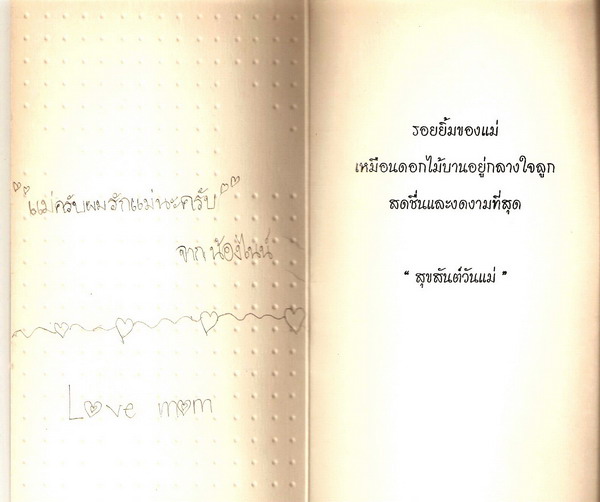 "แม่ครับผมรักแม่นะครับ"
จาก น้องไนน์
Love mom
รอยยิ้มของแม่
เหมือนดอกไม้บานอยู่กลางใจลูก
สดชื่นและงดงามที่สุด
“ สุขสันต์วันแม่ ”